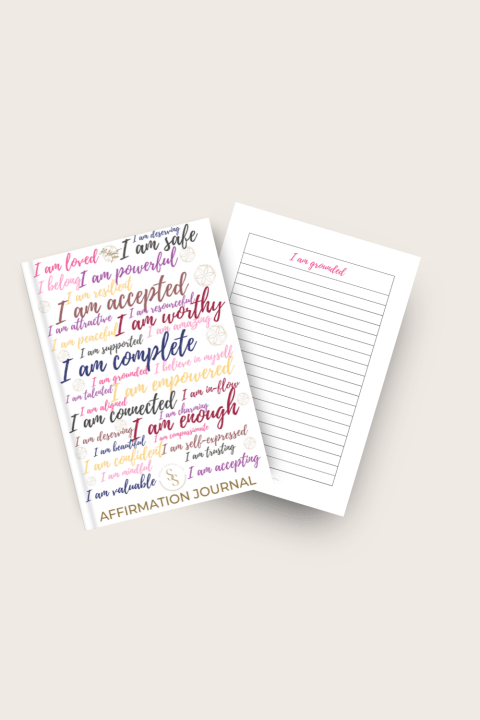 I am deserving
I am loved
I am safe
I belong
I am powerful
I am resilient
I am accepted
I am resourceful
I am attractive
I am worthy
I am peaceful
I am amazing
I am supported
I am complete
I am grounded
I believe in myself
I am talented
I am empowered
I am aligned
I am in-flow
I am connected
I am charming
I am enough
I am deserving
I am compassionate
I am beautiful
I am self-expressed
I am confident
I am trusting
I am mindful
I am accepting
I am valuable
SS
AFFIRMATION JOURNAL
I am grounded